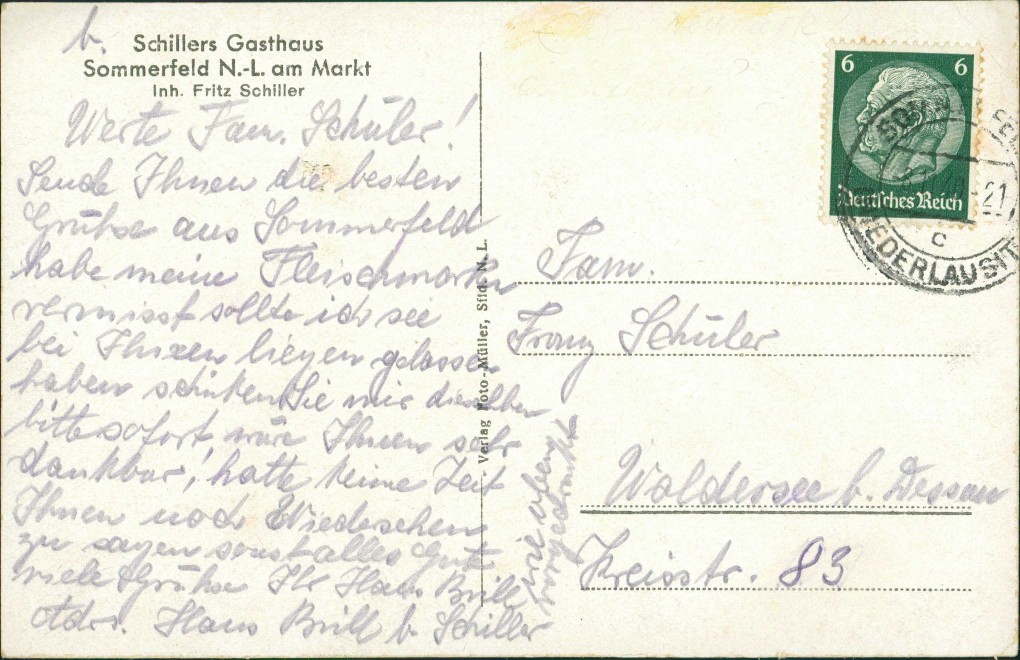 b. Schillers Gasthaus
Sommerfeld N.-L. am Markt
Inh. Fritz Schiller
Werte Fam. Schüler!
Sende Ihnen die besten
Grühse aus Sommerfeld
habe meine Fleischmarken
vermisst sollte ich sie
bei Ihnen liegen gelassen
haben schicken Sie mir dieselben
bitte sofort, wäre Ihnen sehr
dankbar, hatte keine Zeit
Ihnen noch Wiedersehen
zu sagen sonst alles Gute
viele Grühse Ihr Hans Brill
Adrs. Hans Brill b. Schiller
wie oben
vorgedruckt
Verlag Foto-Müller, Sfld. N. L.
6 6
Deutsches Reich
21
c
NIEDERLAUSITZ
Fam.
Franz Schüler
Waldersee b. Dessau
Kreisstr. 83